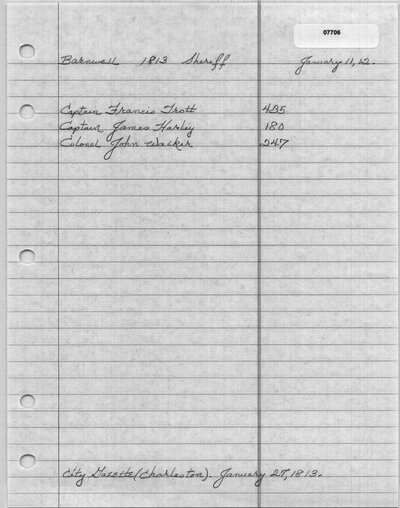 07706
Barnwell 1813 Sheriff January 11, 12.
Captain Francis Trott 435
Captain James Harley 180
Colonel John Walker 247
City Gazette (Charleston). January 27, 1813.